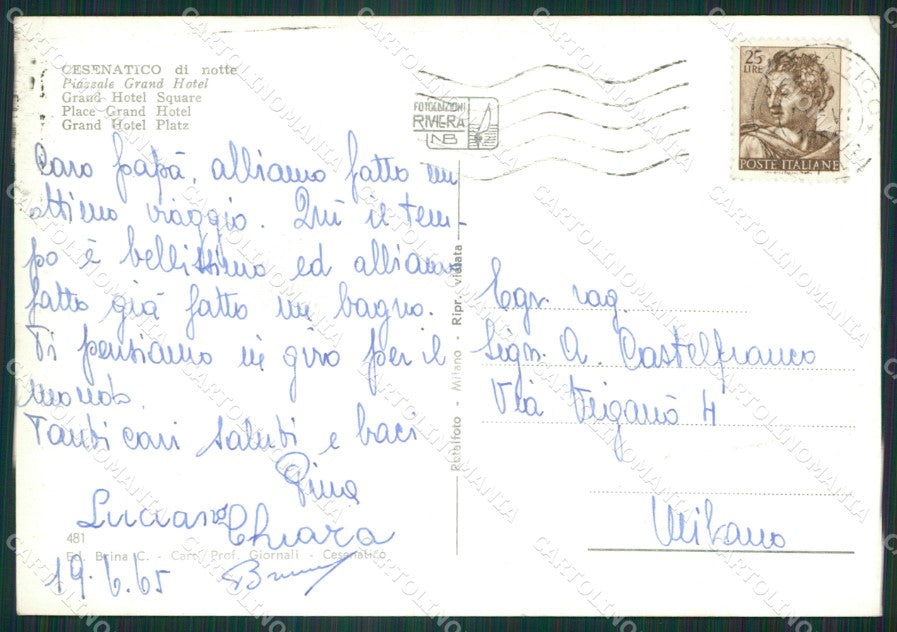 CESENATICO di notte
Piazzale Grand Hotel
Grand Hotel Square
Place Grand Hotel
Grand Hotel Platz
FOTOEDIZIONI
RIVIERA
25
LIRE
POSTE ITALIANE
Caro papà, abbiamo fatto un
ottimo viaggio. Qui il tem-
po è bellissimo ed abbiamo
fatto già fatto un bagno.
Ti pensiamo in giro per il
mondo
Tanti cari saluti e baci
Pina
Luciano
Chiara
Bruno
19.6.65
481
Ed. Brina C. - Cart. Prof. Giornali - Cesenatico
Rotalfoto - Milano - Ripr. vietata
Egr. rag.
Sign. A. Castelfranco
Via Viganò 4
Milano
CARTOLINOMANIA